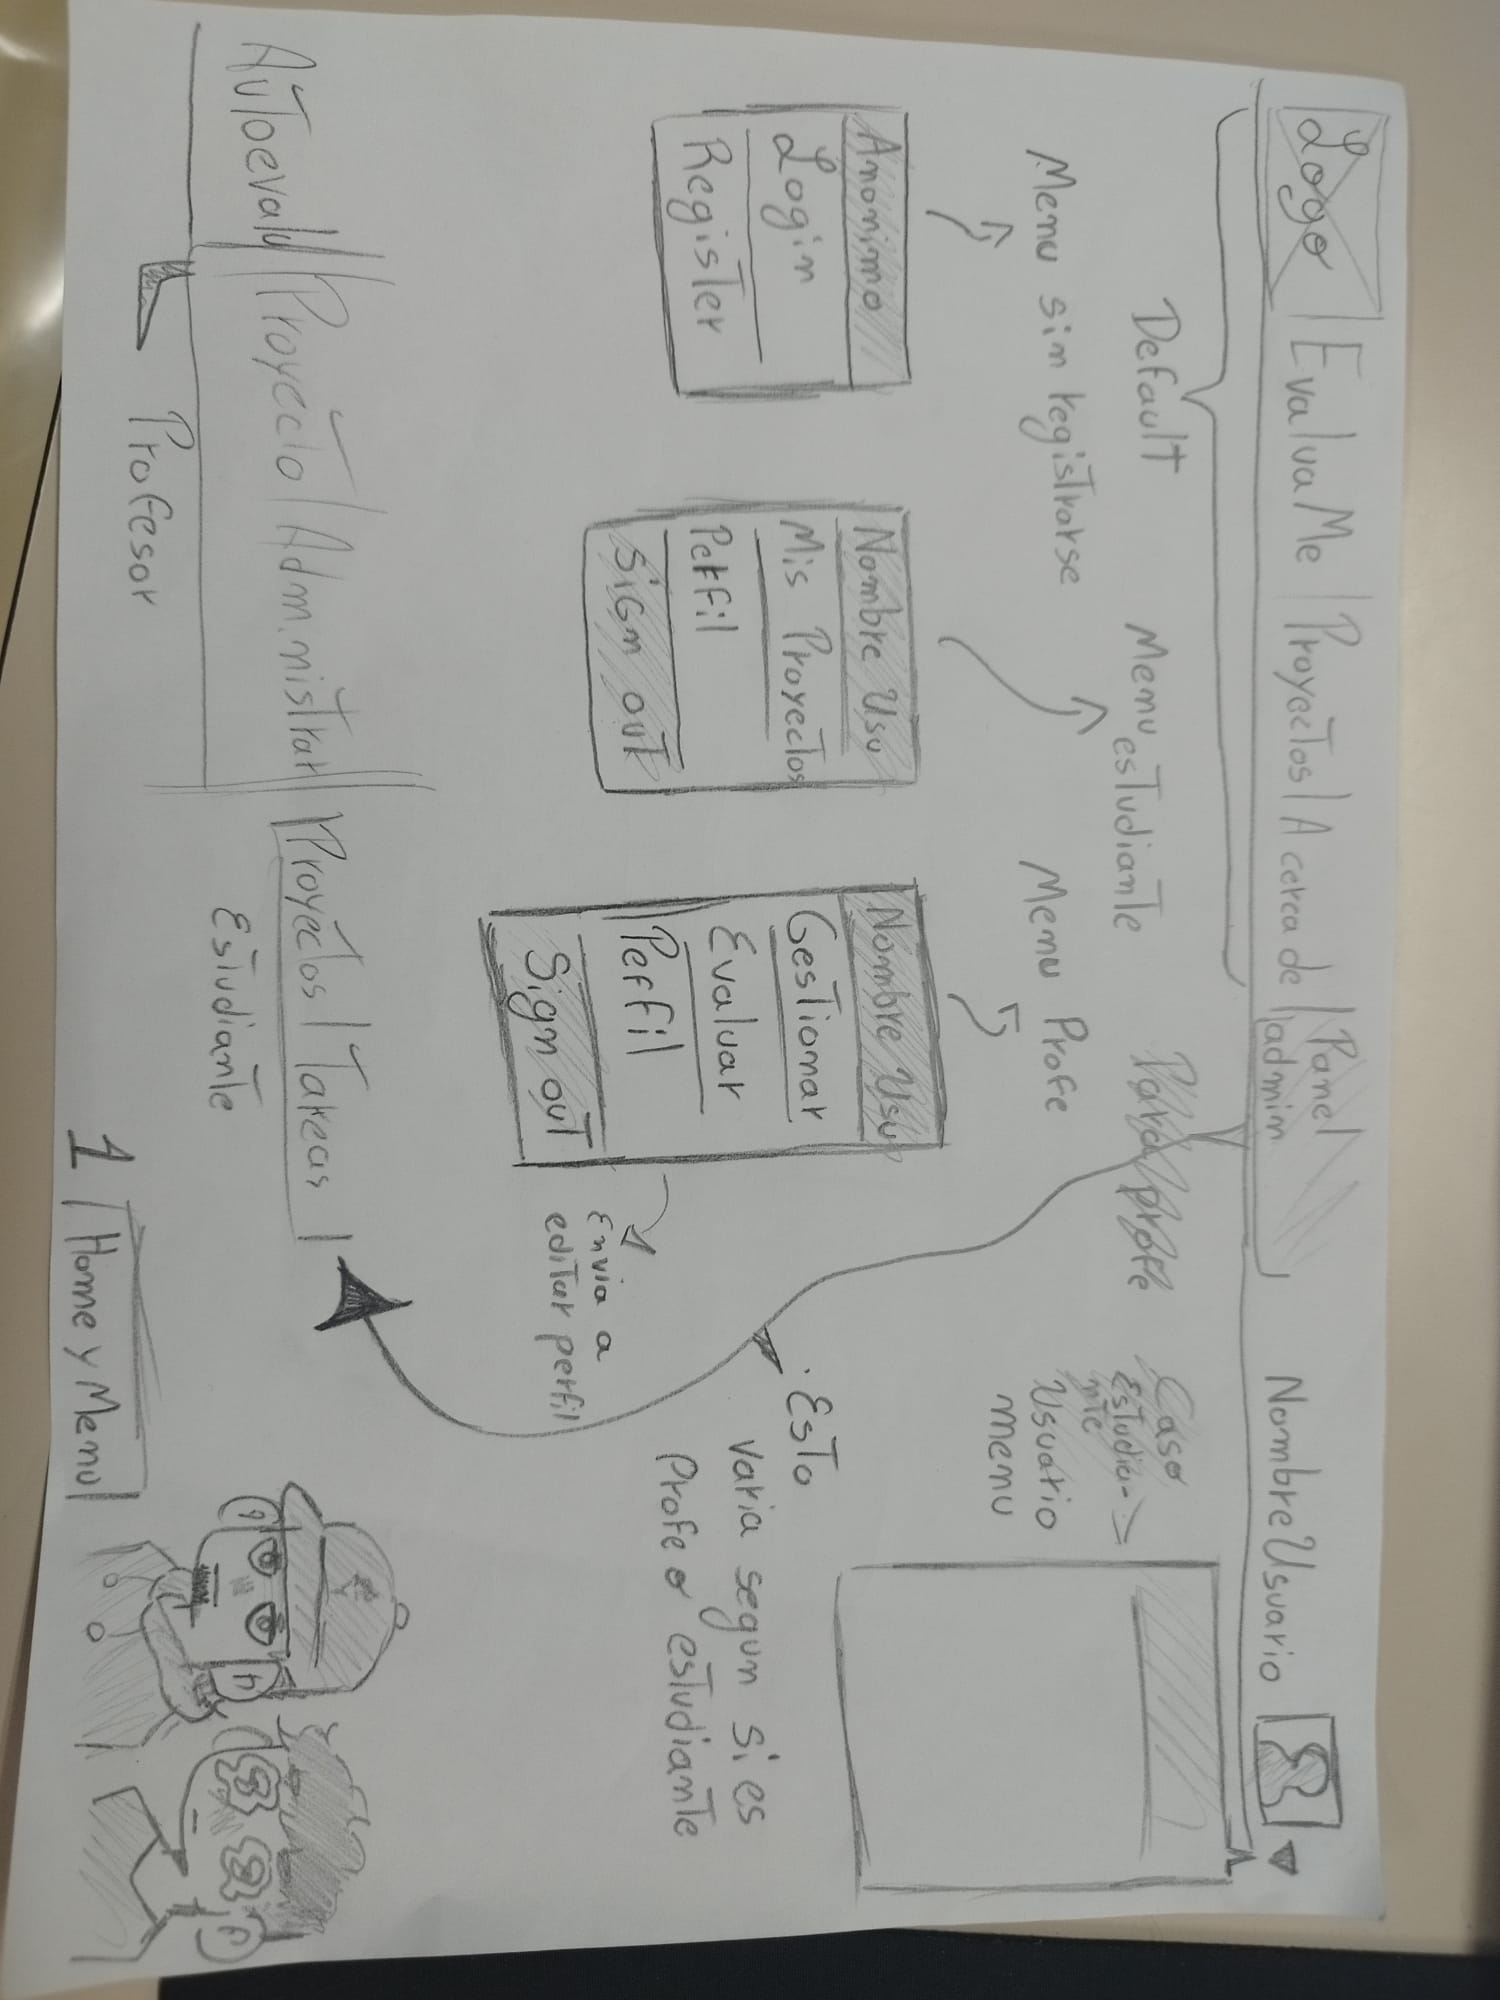 Logo EvaluaMe | Proyectos | Acerca de | Panel
admin
NombreUsuario
Default
Menu sin registrarse
Menu
estudiante
Para profe
Menu Profe
Caso
Estudia-
nte
Usuario
menu
Anonimo
Login
Register
Nombre Usu
Mis Proyectos
Perfil
Sign out
Nombre Usu
Gestionar
Evaluar
Perfil
Sign out
Envia a
editar perfil
Esto
varia segun si es
Profe o estudiante
Autoevalu | Proyecto | Administrar
Profesor
Proyectos | Tareas
Estudiante
1 Home y Menu